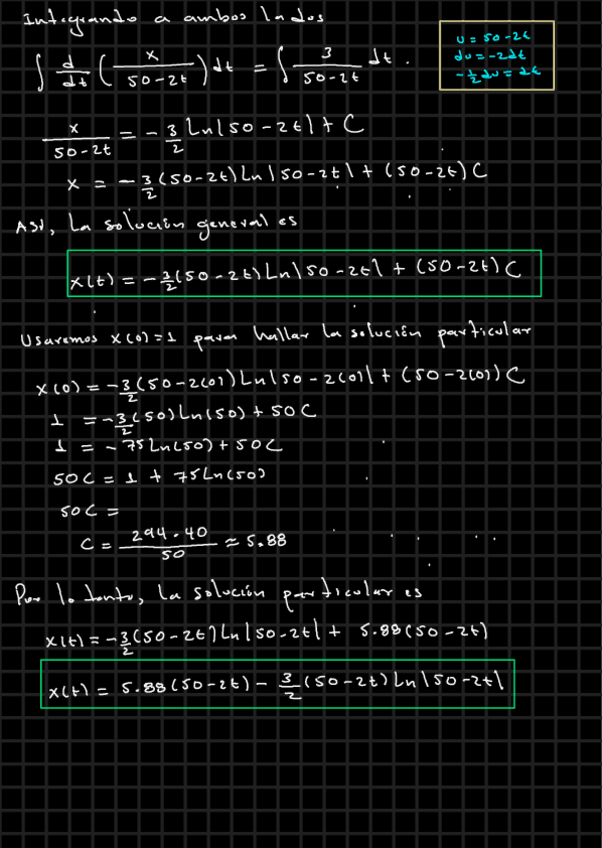 Integrando a ambos lados
∫ d/dt (x/(50-2t)) dt = ∫ 3/(50-2t) dt.
u = 50-2t
du = -2dt
-1/2 du = dt
x/(50-2t) = -3/2 Ln|50-2t| + C
x = -3/2 (50-2t) Ln|50-2t| + (50-2t) C
Así, La solución general es
x(t) = -3/2 (50-2t) Ln|50-2t| + (50-2t) C
Usaremos x(0)=1 para hallar la solución particular
x(0) = -3/2 (50-2(0)) Ln|50-2(0)| + (50-2(0)) C
1 = -3/2 (50) Ln(50) + 50C
1 = -75Ln(50) + 50C
50C = 1 + 75Ln(50)
50C =
C = 294.40/50 ≈ 5.88
Por lo tanto, La solución particular es
x(t) = -3/2 (50-2t) Ln|50-2t| + 5.88(50-2t)
x(t) = 5.88(50-2t) - 3/2 (50-2t) Ln|50-2t|